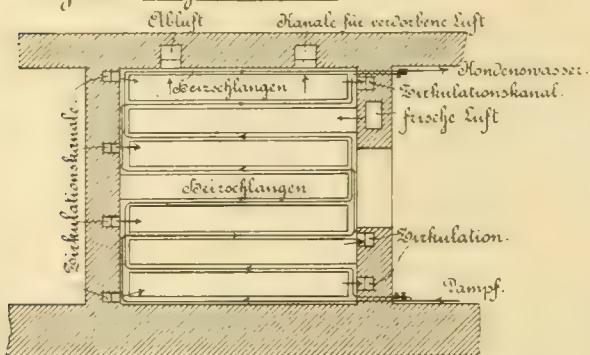 Abluft
Kanäle für verdorbene Luft
Kondenswasser.
Heizschlangen
Zirkulationskanal.
frische Luft
Zirkulationskanäle.
Heizschlangen
Zirkulation.
Dampf.